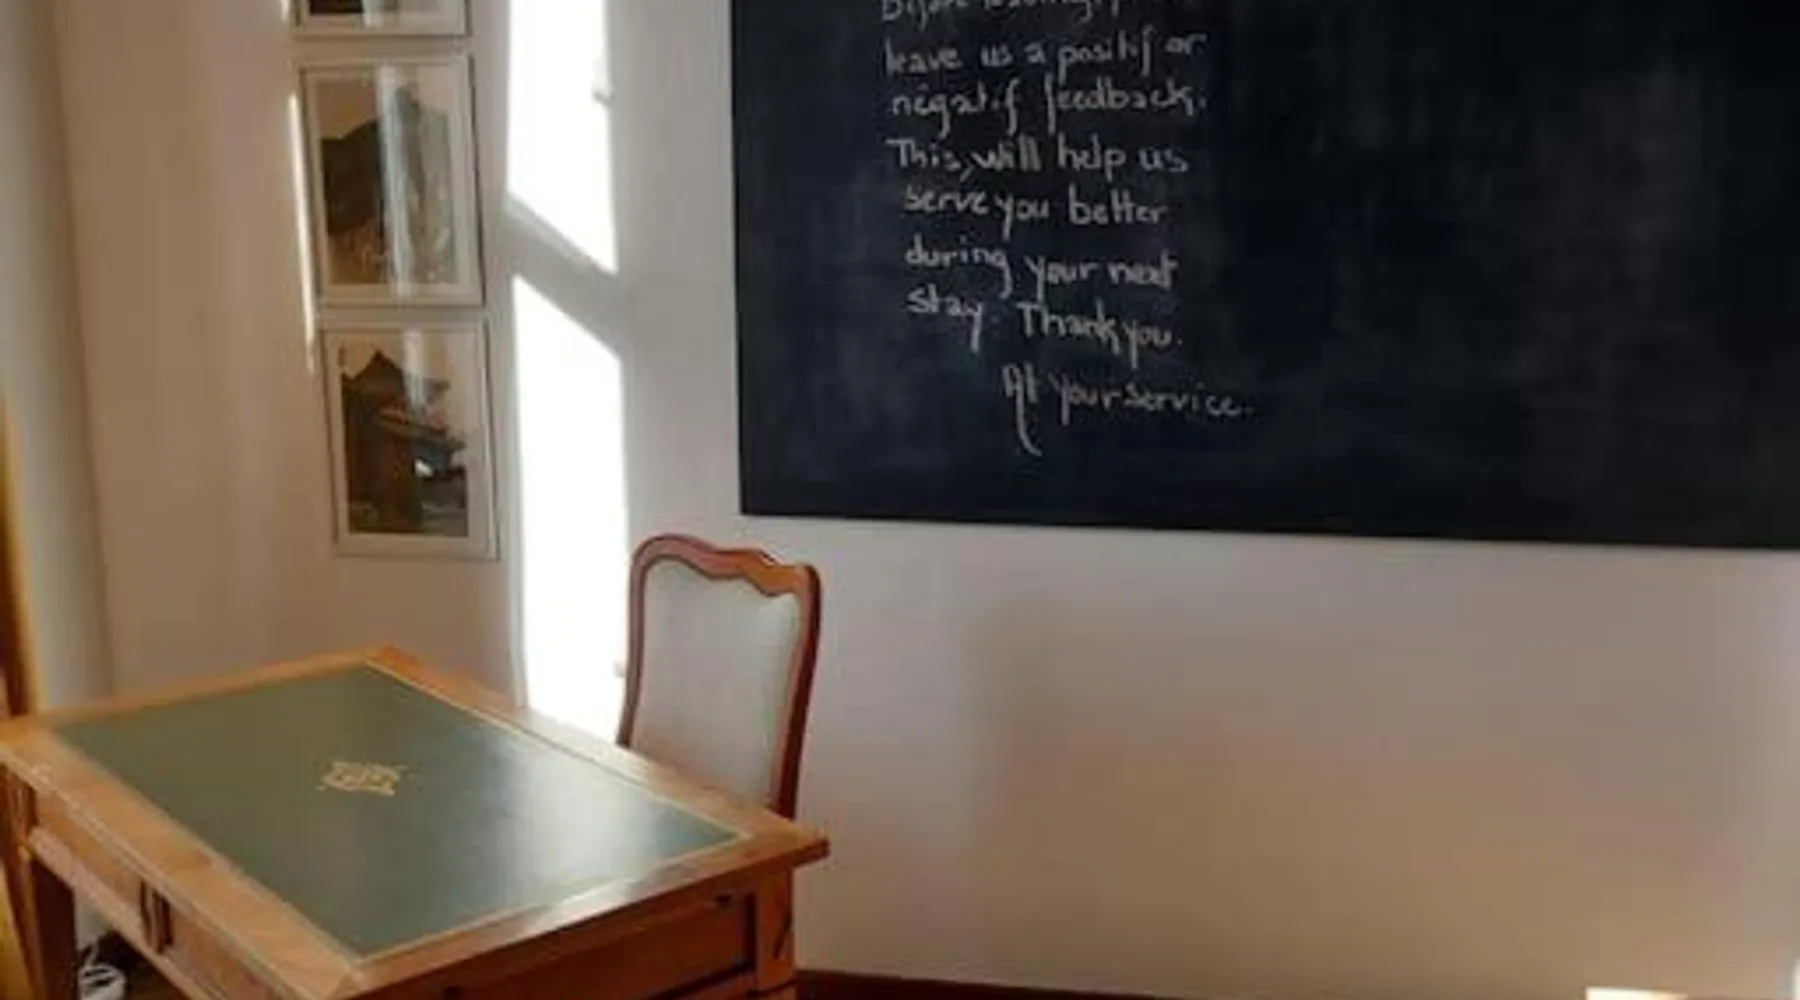 Before leaving,
leave us a positif or
négatif feedback.
This, will help us
serve you better
during your next
stay. Thank you.
At your service.